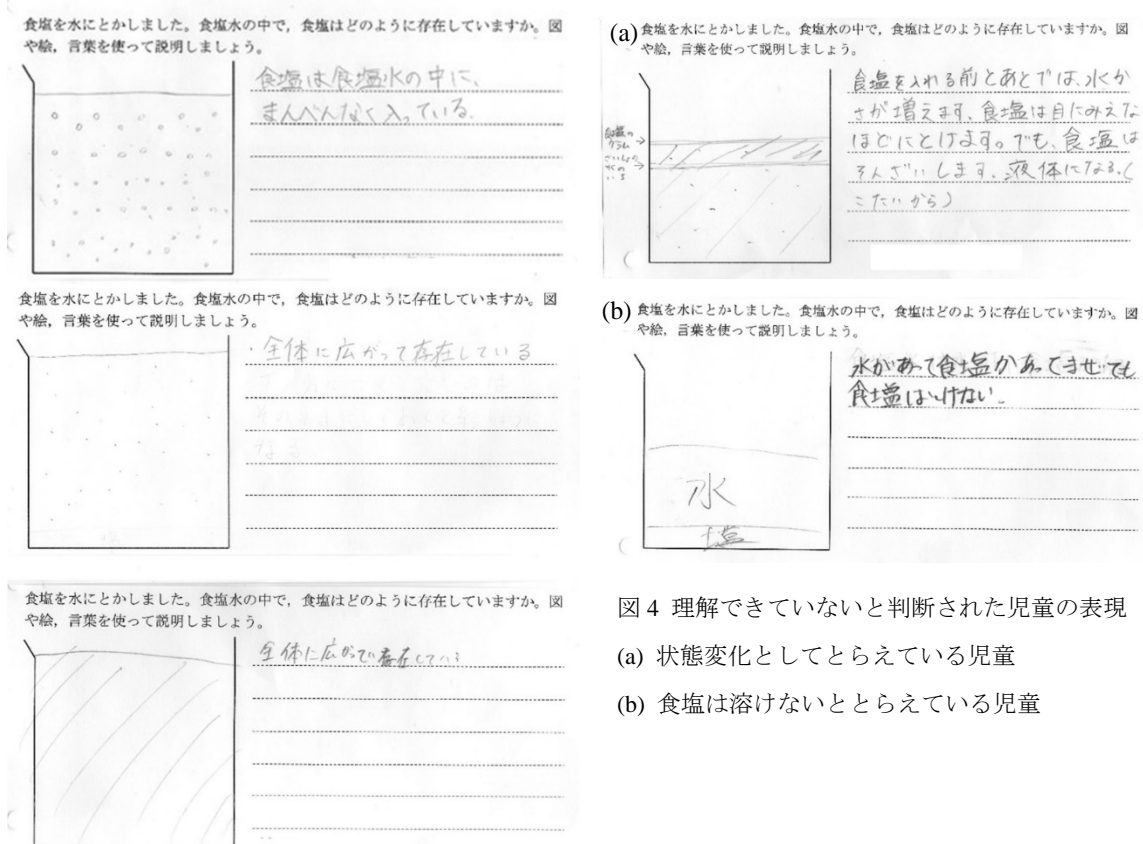 食塩を水にとかしました。食塩水の中で，食塩はどのように存在していますか。図
や絵，言葉を使って説明しましょう。
食塩は食塩水の中に、
まんべんなく入っている。
食塩を水にとかしました。食塩水の中で，食塩はどのように存在していますか。図
や絵，言葉を使って説明しましょう。
・全体に広がって存在している
なる
食塩を水にとかしました。食塩水の中で，食塩はどのように存在していますか。図
や絵，言葉を使って説明しましょう。
全体に広がって存在している
(a) 食塩を水にとかしました。食塩水の中で，食塩はどのように存在していますか。図
や絵，言葉を使って説明しましょう。
食塩の
グラム
食塩を入れる前とあとでは、水か
さが増えます、食塩は目にみえな
ほどにとけます。でも、食塩は
そんざいします、液体になる。(
こたいから)
(b) 食塩を水にとかしました。食塩水の中で，食塩はどのように存在していますか。図
や絵，言葉を使って説明しましょう。
水があって食塩があってまぜても
食塩はとけない。
水
塩
図 4 理解できていないと判断された児童の表現
(a) 状態変化としてとらえている児童
(b) 食塩は溶けないととらえている児童